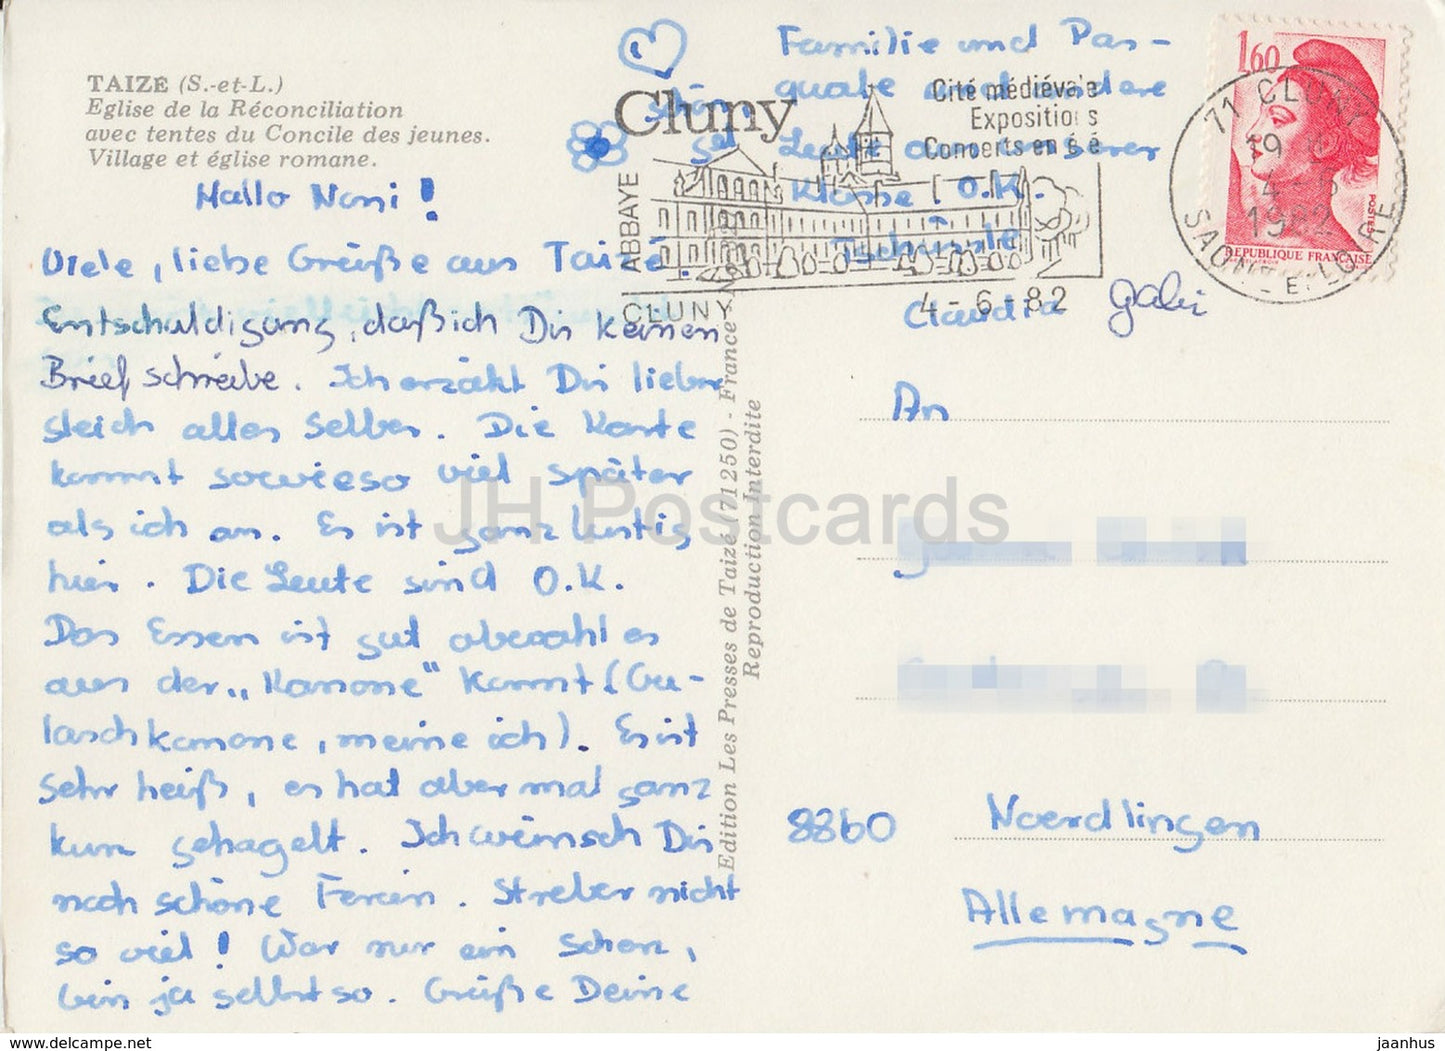 TAIZE (S.-et-L.)
Eglise de la Réconciliation
avec tentes du Concile des jeunes.
Village et église romane.
Hallo Nani!
Viele, liebe Grüße aus Taizé.
Entschuldigung, daß ich Dir keinen
Brief schreibe. Ich erzähl Dir lieber
gleich alles selber. Die Karte
kommt sowieso viel später
als ich an. Es ist ganz lustig
hier. Die Leute sind O.K.
Das Essen ist gut obwohl es
aus der „Kanone" kommt (Gu-
laschkanone, meine ich). Es ist
sehr heiß, es hat aber mal ganz
kurz gehagelt. Ich wünsch Dir
noch schöne Ferien. Streber nicht
so viel! War nur ein Scherz,
bin ja selbst so. Grüße Deine
Familie und Pas-
quale und andere
Leute aus unserer
Klasse O.K.
Tschüßle
Claudia Gabi
Cluny
Cité médiévale
Expositions
Concerts en été
ABBAYE
CLUNY
4-6-82
1,60
POSTES
REPUBLIQUE FRANÇAISE
71 CLUNY
19 H
4-6
1982
SAONE-ET-LOIRE
Edition Les Presses de Taizé (71250) - France -
Reproduction Interdite
An
8860 Noerdlingen
Allemagne
JH Postcards
www.delcampe.net
jaanhus